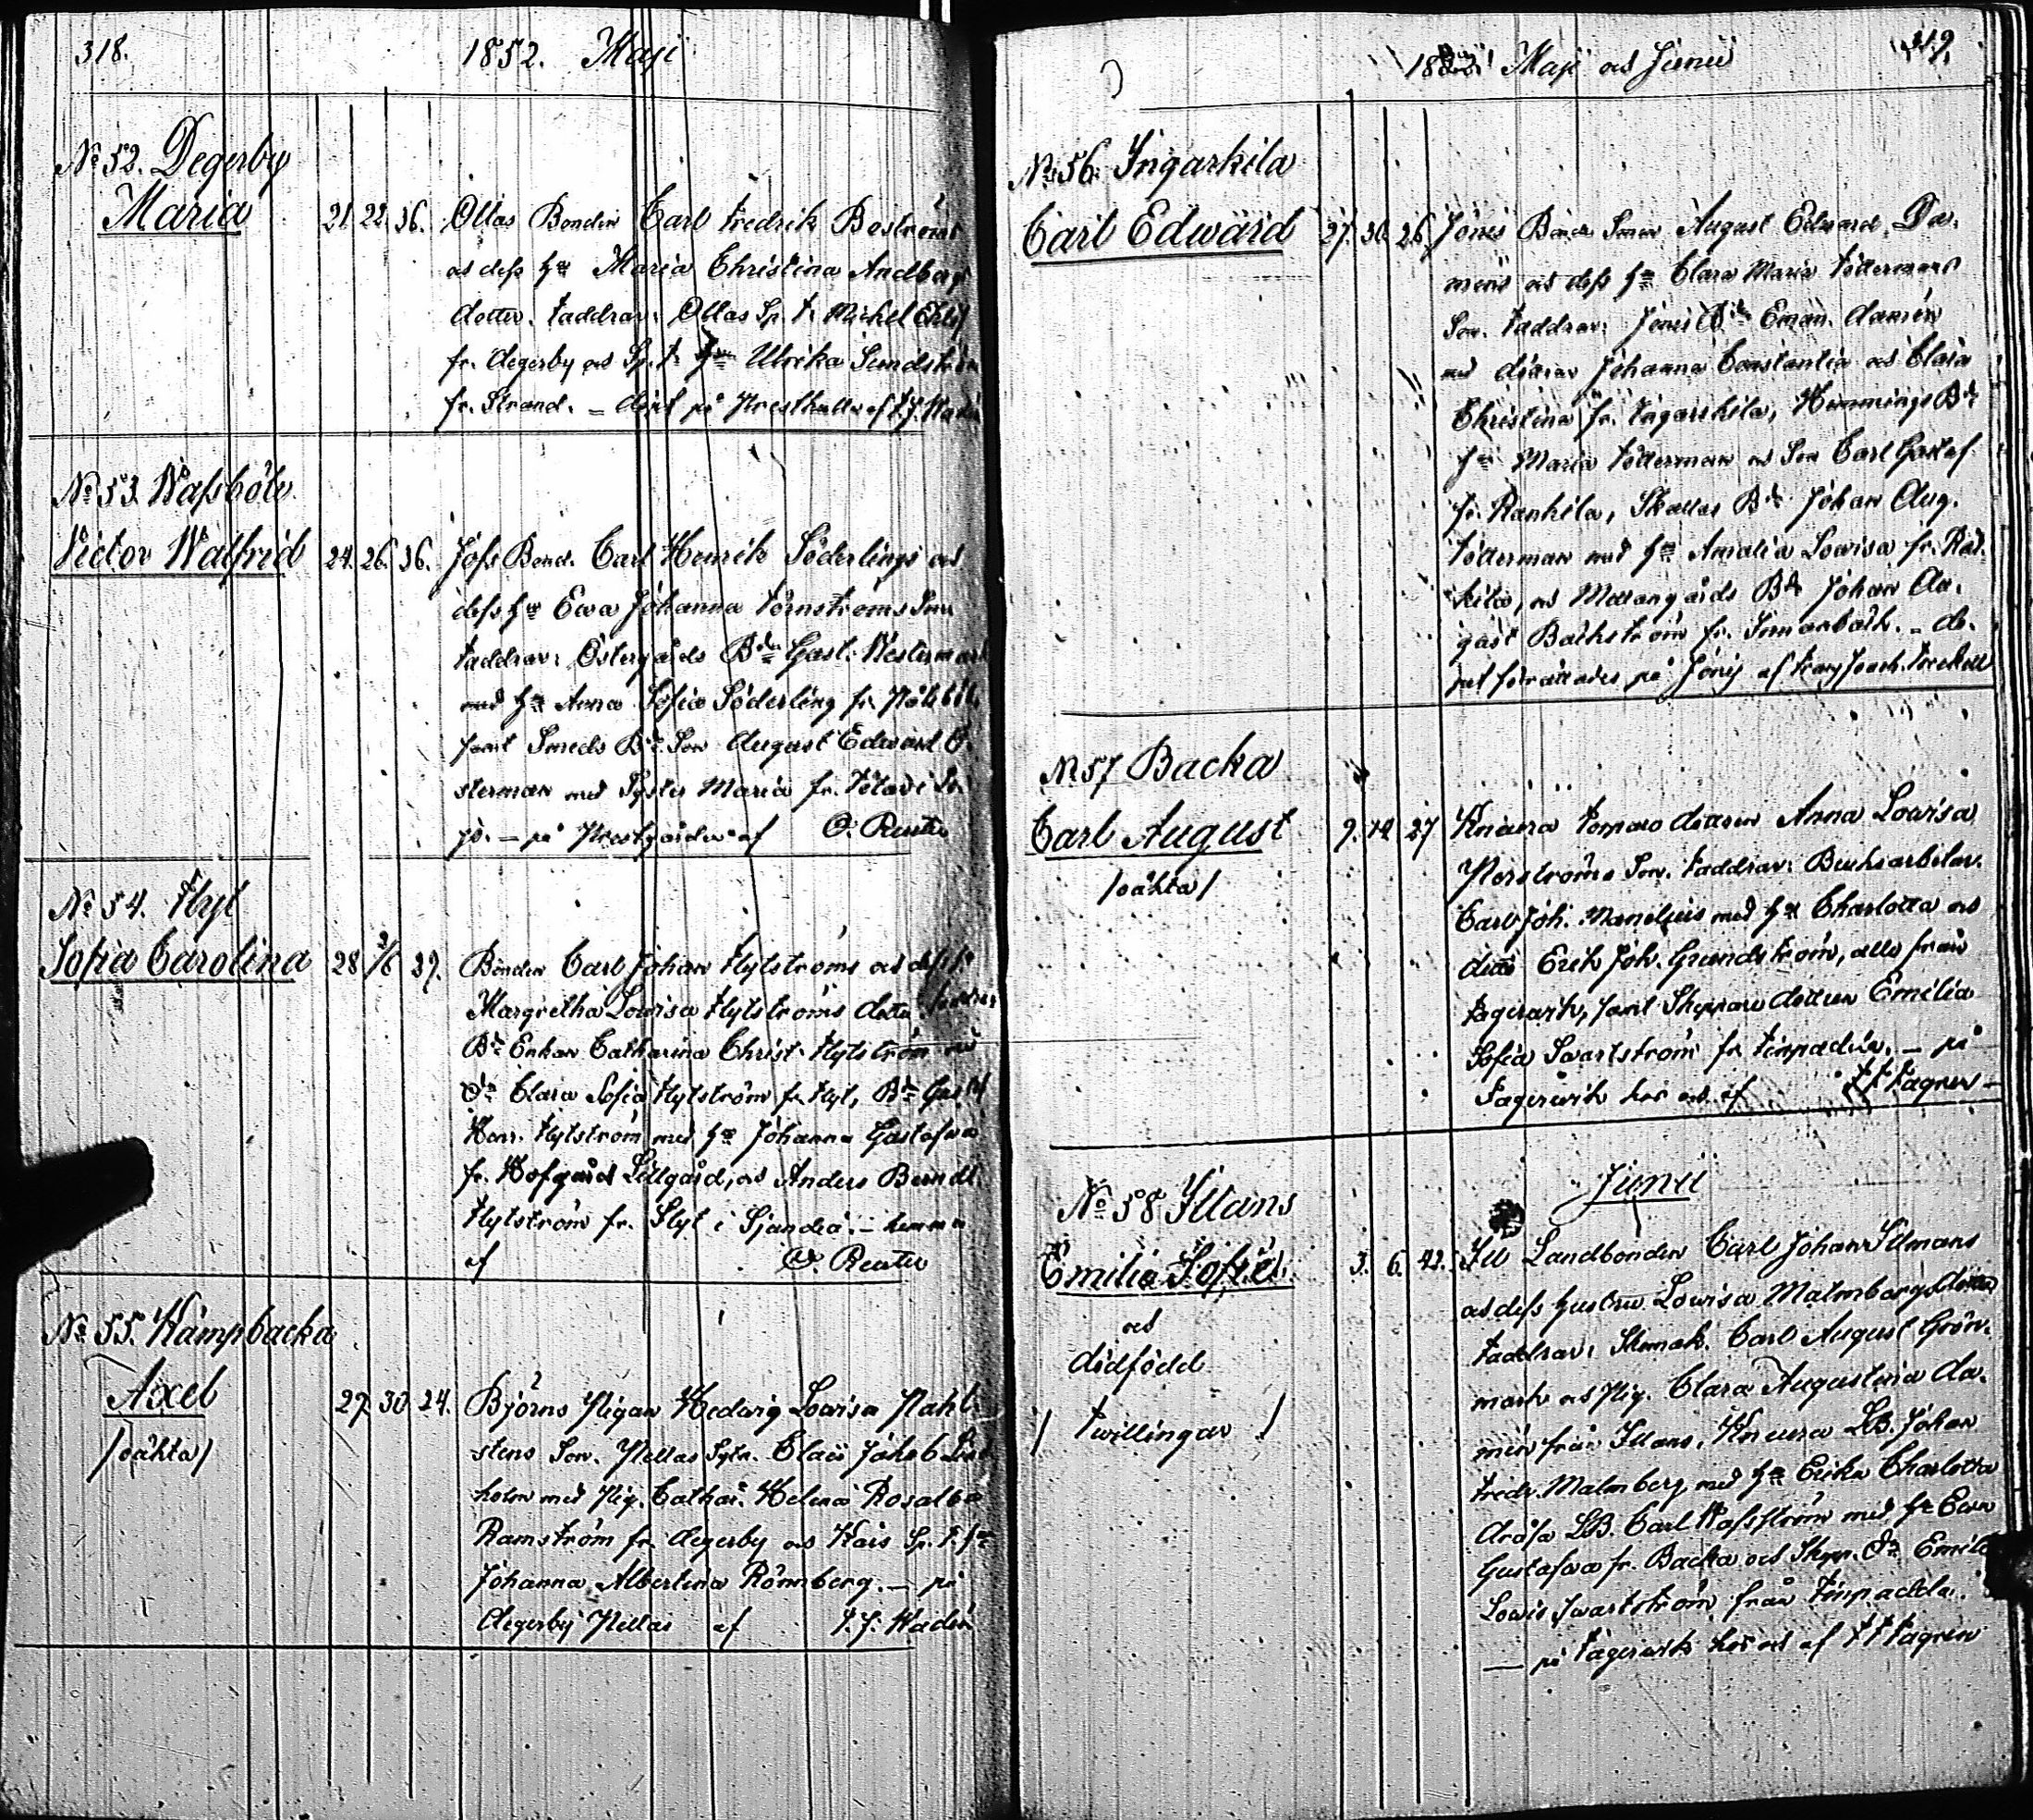 318.
1852. Maji
No 52. Degerby
Maria 21. 22. 36. Ollas Bonden Carl Fredrik Boströms
och dess hu Maria Christina Andbergs
dotter. Faddrar: Ollas Sp. t. Michel
fr. Degerby och Sp. t. hu Ulrika Sundström
fr. Strand. – döpt på af F. J. Wadén
No 53. Wassböle
Victor Walfrid 24. 26. 36. Jofs Bond. Carl Henrik Söderlings och
dess hu Ewa Johanna Törnströms Son
Faddrar: Östergårds Bdn Gust. Westermark
med hu Anna Sofia Söderling fr.
samt Smeds Bde Son August Edward Ö-
sterman med Syster Maria fr. i
jo. – på Prestgården af O. Reuter
No 54. Flyt
Sofia Carolina 28 2/6 29. Bonden Carl Johan Flytströms och dess hu
Margretha Lovisa Flytströms dotter Faddrar
Bde Enkan Catharina Christ. Flytström och
Dr Clara Sofia Flytström fr. Flyt, Bdn Gustaf
Henr. Flytström med hu Johanna Gustafva
fr. Hofgård Lillgård, och Anders Berndt
Flytström fr. Flyt i Sjundeå. – hemma
af O. Reuter
No 55. Kämpbacka
Axel 27. 30. 24. Björns Pigan Hedwig Lovisa Wahl-
/oäkta/ stens Son. Nellas Sytn. Claës Jakob
holm med Pig. Cathar. Helena Rosalba
Ramström fr. Degerby och Kais Sp. t. hu
Johanna Albertina Rönnberg. – på
Degerby Nellas af F. J. Wadén
319.
1852. Maji och Junii
No 56. Ingarskila
Carl Edward 27. 30. 26. Jönis Bonde Sonen August Edward Da-
mens och dess hu Clara Maria Södermans
Son. Faddrar: Jönis Bde Eman. Damén
med Johanna Constantia och Clara
Christina fr. Ingarskila, Hemmings Bde
hu Maria Söderman och Son Carl Gustaf
fr. Rankila, Skallas Bde Johan Aug.
Söderman med hu Amalia Lovisa fr. Ran-
kila, och Malangårds Bde Johan Au-
gust Backström fr. Innanbäck. – do-
pet förrättades på Jönis af
No 57 Backa
Carl August 9. 12. 27 Knivra Torpare dottren Anna Lovisa
/oäkta/ Norströms Son. Faddrar: Bruksarbetar.
Carl Joh. Manelius med hu Charlotta och
Erik Joh. Grundström, alla från
Fagervik, samt Skeppare dottren Emilia
Sofia Svartström fr. – på
Fagervik hos och af Fagren –
Junii
No 58 Illans
Emilia Sofia 3. 6. 42. Ill Landbonden Carl Johan Illmans
och och dess hustru Lovisa Malmbergs dotter
dödfödd Faddrar: Skomak. Carl August Grön-
/ Twillingar / mark och Pig. Clara Augustina Da-
mén från Illans, Knivra LB. Johan
Fredr. Malmberg med hu Erika Charlotta
LB. Carl Wassström med hu Ewa
Gustafva fr. Backa och Skepp. Dr Emilia
Lovis. Svartström från
– på Fagervik hos och af Fagren